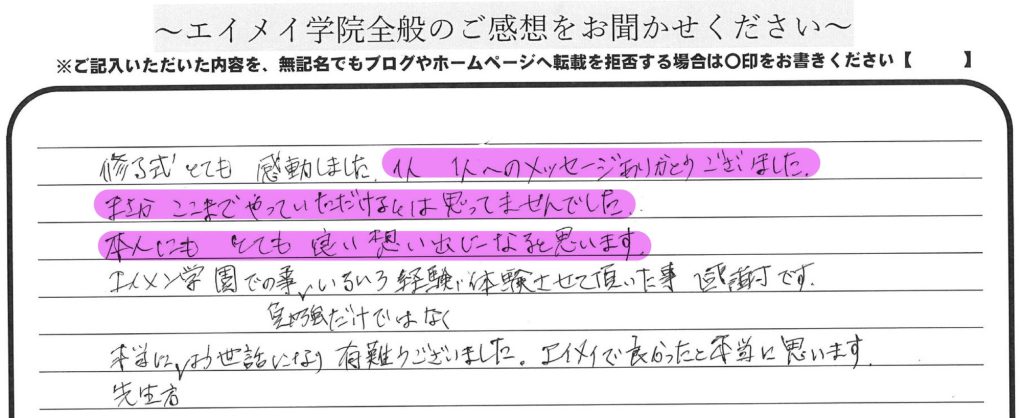 ～エイメイ学院全般のご感想をお聞かせください～
※ご記入いただいた内容を、無記名でもブログやホームページへ転載を拒否する場合は〇印をお書きください【　　】
修了式 とても 感動しました。1人 1人へのメッセージありがとうございました。
まさか ここまで やっていただけるとは思ってませんでした。
本人にも とても 良い 想い出になると思います。
エイメン学園での事、いろいろ経験、体験させて頂いた事 感謝です。
勉強だけではなく
本当に、お世話になり 有難うございました。エイメイで良かったと本当に思います。
先生方